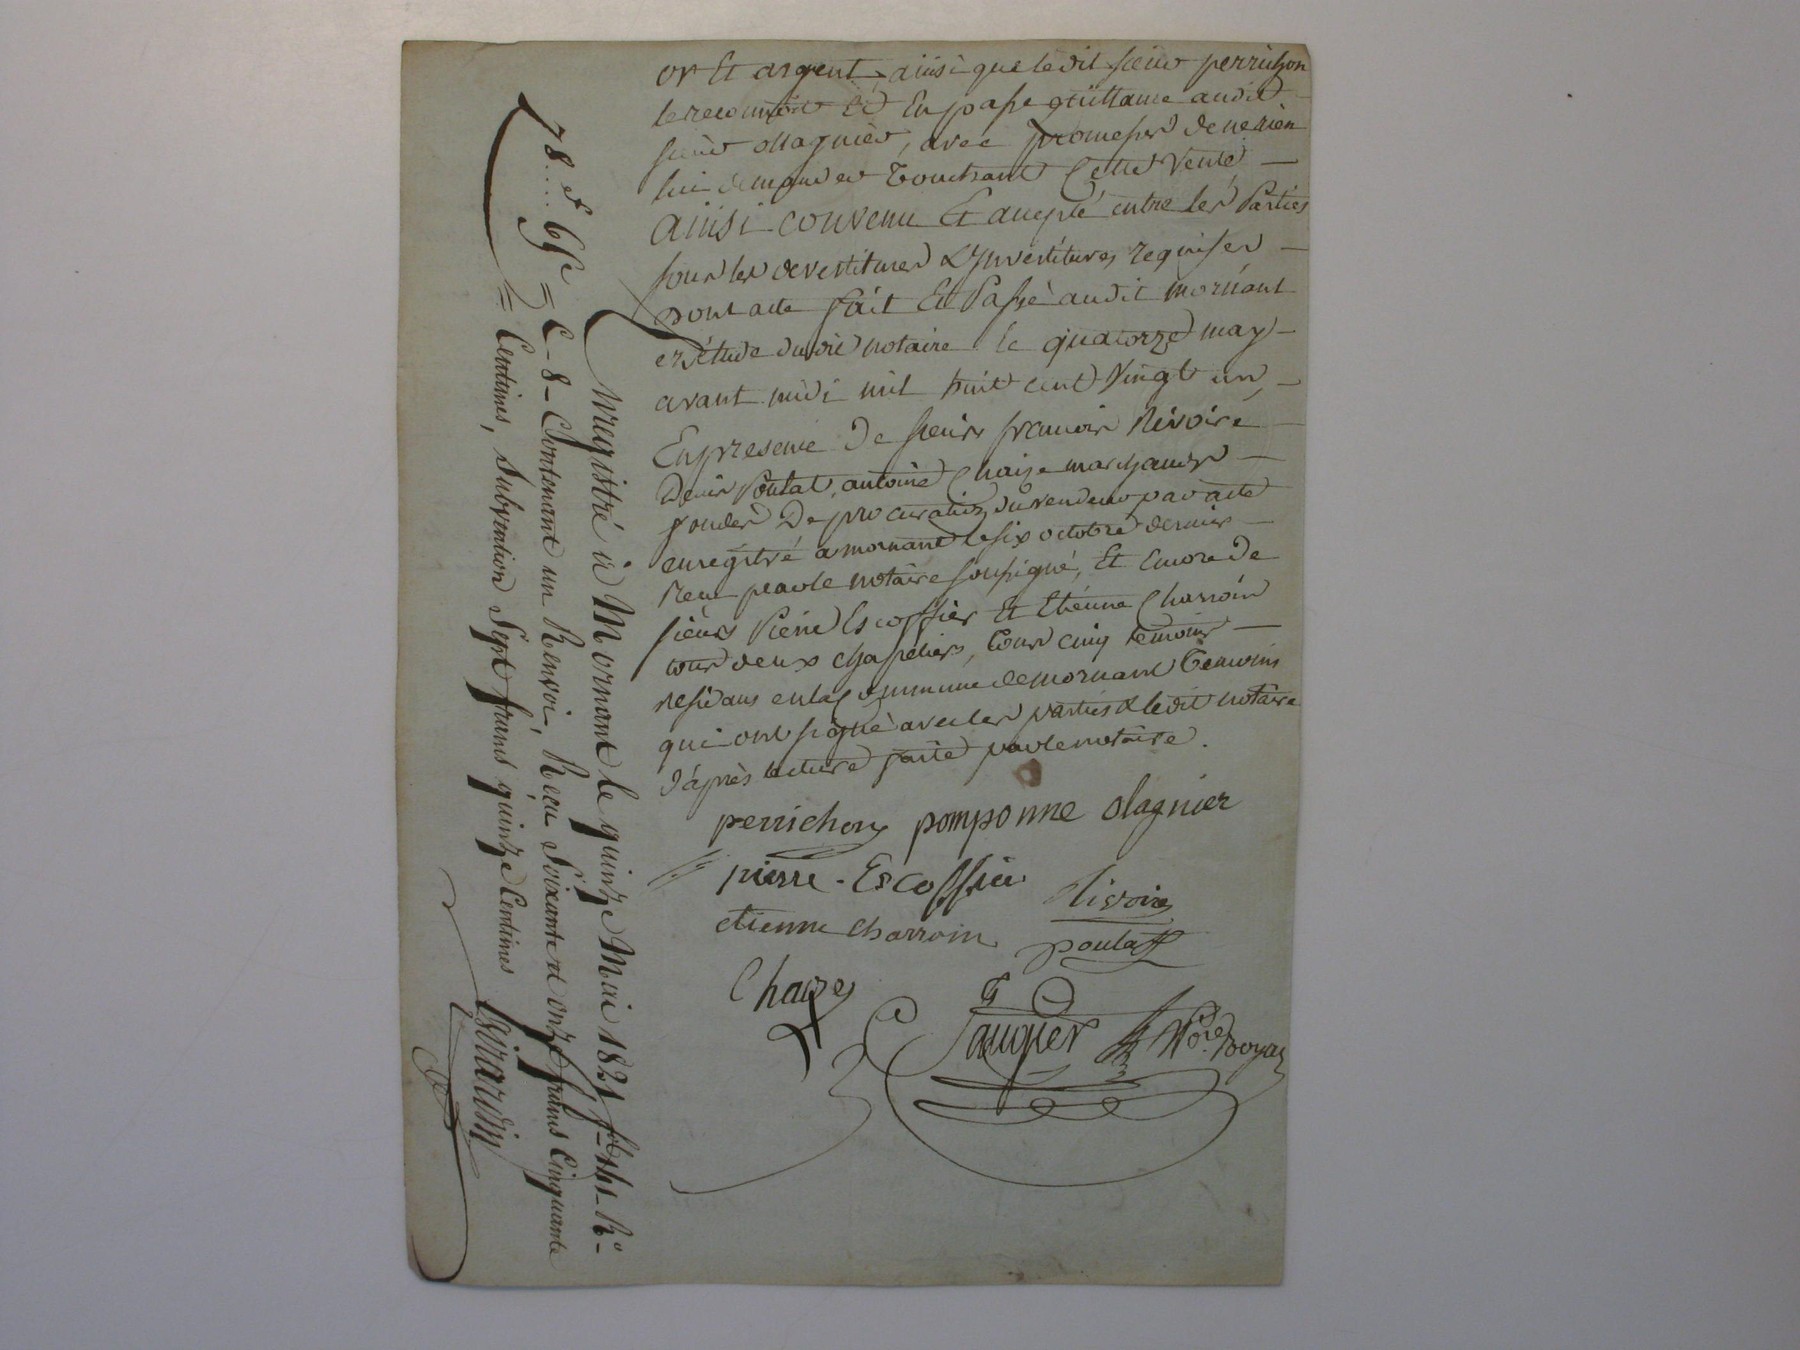 or Et argent, ainsi que ledit sieur perrichon
le reconnoit Et En passe quittance audit
sieur ollagnier, avec promesse de ne rien
lui demander Touchant Cette Vente —
ainsi convenu Et accepté entre les Parties
sous les devestitures & Investitures requises —
dont acte fait Et Passé audit mornant
en l'étude dudit notaire le quatorze may —
avant midi mil huit cent Vingt un, —
En presence de sieurs francois Rivoire —
Denis Poulat, antoine Chaize marchands —
fondés De procuration du vendeur par acte
enregistré a mornant le six octobre dernier —
recu par le notaire soussigné, Et Encore de
sieurs Pierre Escoffier Et Etienne Charroin
tous deux chapeliers, Tous cinq temoins —
residans en la Commune de mornant Temoins
qui ont signé avec les parties & ledit notaire
d'après lecture faite par le notaire.
perrichon pomponne olagnier
pierre . Escoffier
Rivoire
etienne charroin
poulat
Chaize
Saugier Nore Royal
Enregistré à Mornant le quinze Mai 1821 fo 161 Ro
C 8 Contenant un Renvoi, Reçu Soixante et onze francs Cinquante
Centimes, Subvention Sept francs quinze Centimes
78.. 65
Girardin